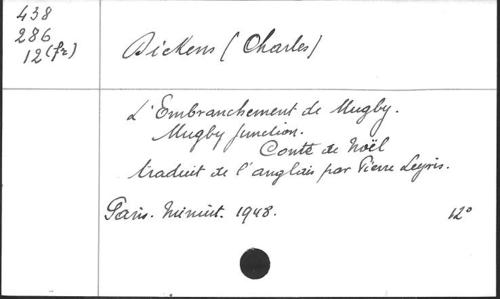 438
286
12 (fr)
Dickens (Charles)
L'Embranchement de Mugby.
Mugby Junction.
Conte de Noël
traduit de l'anglais par Pierre Leyris.
Paris. Minuit. 1948. 12°